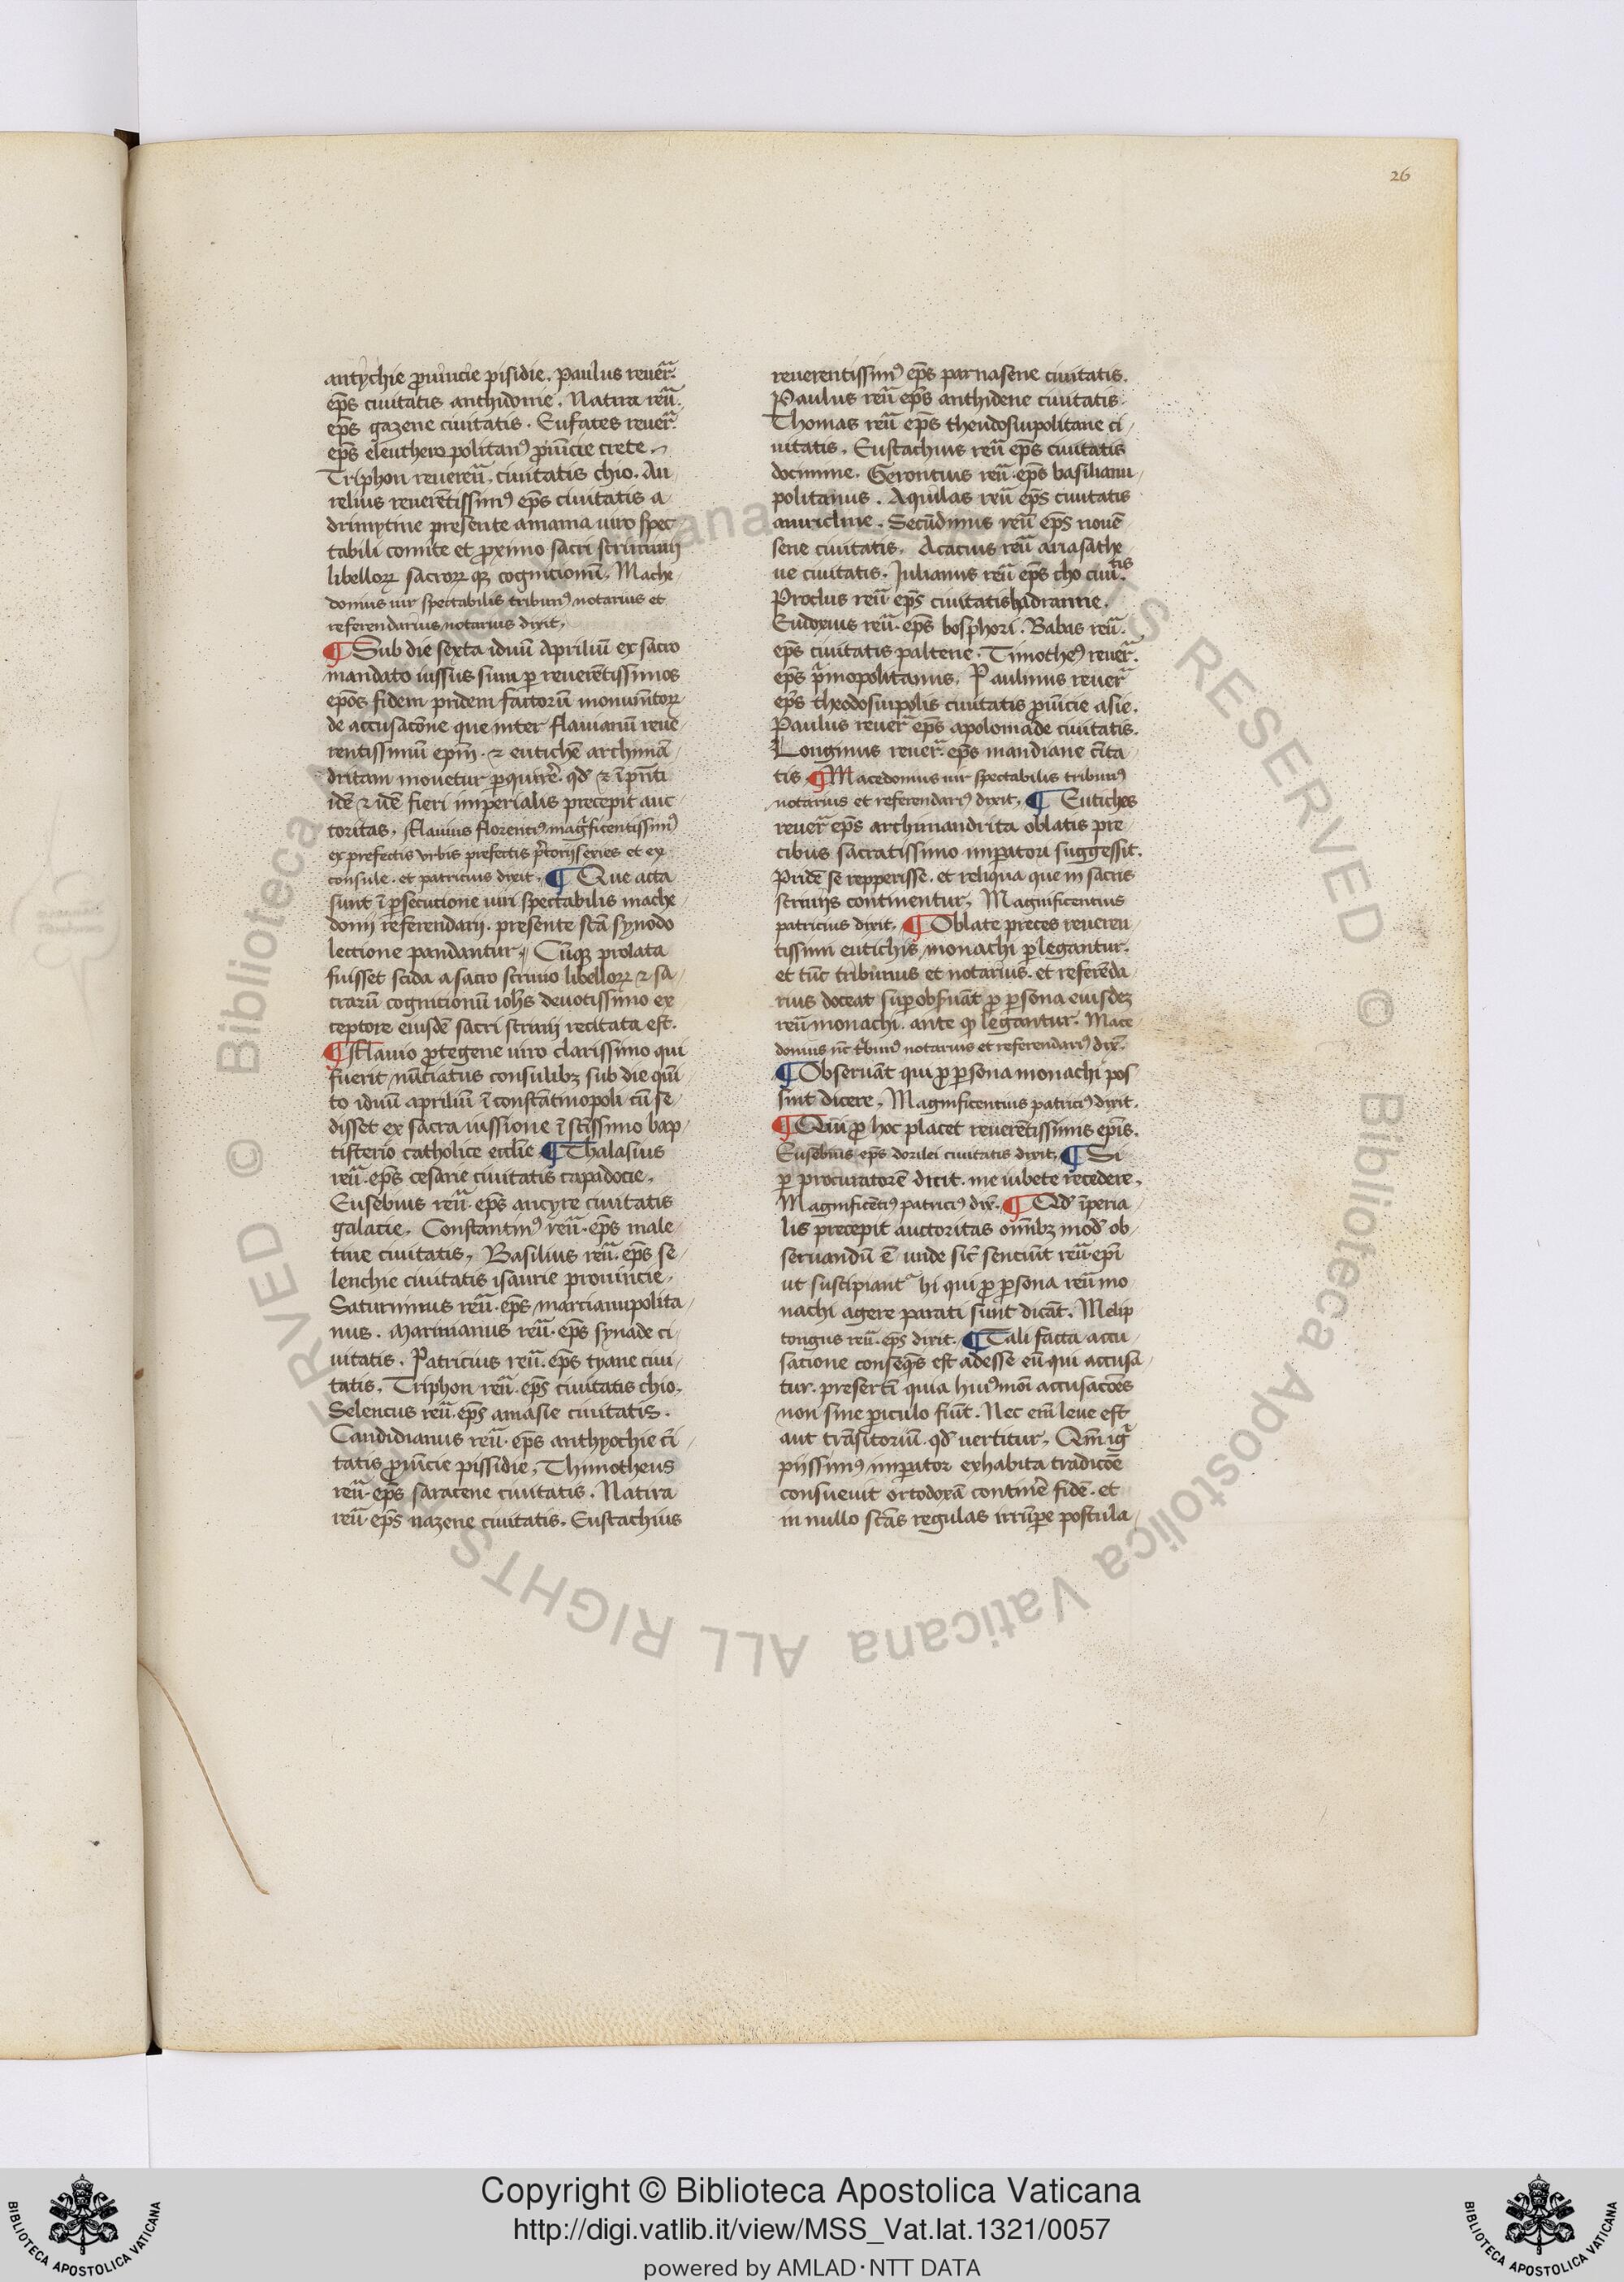 26
antychie ꝓuincie pisidie. Paulus reuer̃.
ep̃s ciuitatis anthidonie. Natira reũ.
ep̃s gazene ciuitatis. Eufrates reuer̃.
ep̃s eleutheropolitanꝰ ꝓuĩcie crete.
Triphon reuereũ. ciuitatis chio. Au
relius reuerẽtissimꝰ ep̃s ciuitatis a
drimytine presente amama uiro spec
tabili comite et ꝓximo sacri scrinii
libelloꝝ sacroꝝ qꝫ cognitionũ. Mache
donius uir spectabilis tribunꝰ notarius et
referendarius notarius dixit.
¶ Sub die sexta iduũ Apriliũ ex sacro
mandato iussus sum ꝑ reuerẽtissimos
ep̃os fidem pridem factorũ monumẽtoꝝ
de accusacõne que inter flauianũ reue
rentissimũ ep̃m. ⁊ eutichẽ archimã
dritam mouetur ꝑquirẽ. qd̃ ⁊ ĩ p̃nti
idẽ ⁊ idẽ fieri imperialis precepit auc
toritas. Flauius florenciꝰ magñficentissimꝰ
ex prefectis vrbis prefectis p̃torii sexies et ex
consule. et patricius dixit. ¶ Que acta
sunt ĩ ꝑsecutione uiri spectabilis mache
donii referendarii. presente sc̃a synodo
lectione pandantur. Cũqꝫ prolata
fuisset scida a sacro scrinio libelloꝝ ⁊ sa
crarũ cognitionũ ioh̃s deuotissimo ex
ceptore eiusdẽ sacri scrinii recitata est.
¶ Flauio ꝓtegene uiro clarissimo qui
fuerit nũciatus consulibꝫ sub die quĩ
to iduũ apriliũ ĩ constãtinopoli cũ se
disset ex sacra iussione ĩ sc̃issimo bap
tisterio catholice eccl̃ie ¶ Thalasius
reũ. ep̃s cesarie ciuitatis capadocie.
Eusebius reũ. ep̃s ancyre ciuitatis
galatie. Constantinꝰ reũ. ep̃s male
tine ciuitatis. Basilius reũ. ep̃s se
leuchie ciuitatis isaurie prouincie.
Saturninus reũ. ep̃s marcianupolita
nus. Marinianus reũ. ep̃s synade ci
uitatis. Patricius reũ. ep̃s tyane ciui
tatis. Triphon reũ. ep̃s ciuitatis chio.
Seleucus reũ. ep̃s amasie ciuitatis.
Candidianus reũ. ep̃s anthyochie cĩ
tatis ꝓuĩcie pissidie. Thimotheus
reũ. ep̃s saracene ciuitatis. Natira
reũ. ep̃s nazene ciuitatis. Eustachius
reuerentissimꝰ ep̃s parnasene ciuitatis.
Paulus reũ ep̃s anthidene ciuitatis.
Thomas reũ ep̃s theudosiupolitane ci
uitatis. Eustachius reũ ep̃s ciuitatis
docimine. Gerontius reũ. ep̃s basilianu
politanus. Aquilas reũ ep̃s ciuitatis
auricline. Secũdinus reũ ep̃s nouẽ
sene ciuitatis. Acacius reũ ariasathe
ne ciuitatis. Julianus reũ ep̃s cho ciuitis.
Proclus reũ. ep̃s ciuitatis hadranne.
Eudoxius reũ. ep̃s bosphori. Babas reũ.
ep̃s ciuitatis paltene. Timotheꝰ reuer̃.
ep̃s p̃mopolitanus. Paulinus reuer̃
ep̃s theodosiupolis ciuitatis ꝓuĩcie asie.
Paulus reuer̃ ep̃s apoloniade ciuitatis.
Longinus reuer̃. ep̃s mandiane cĩta
tis ¶ Macedonius uir spectabilis tribunꝰ
notarius et referendariꝰ dixit. ¶ Eutiches
reuer̃ ep̃s archimandrita oblatis pre
cibus sacratissimo imꝑatori suggessit.
Pridẽ se repperisse. et reliqua que in sacris
scriniis continentur. Magnificentius
patricius dixit. ¶ Oblate preces reueren
tissimi eutichis monachi ꝑlegantur.
et tũc tribunus et notarius. et referẽda
rius doceat suꝑ obseruãt ꝓ ꝑsona eiusdeꝫ
reũ monachi. ante qͥ legantur. Mace
donius ur̃ tbunꝰ notarius et referendariꝰ dix̃.
¶ Obseruãt qui ꝓ ꝑsona monachi pos
sint dicere. Magnificentius patriciꝰ dixit.
¶ Qui ꝓ hoc placet reuerẽtissimis ep̃is.
Eusebius ep̃s dorilei ciuitatis dixit. ¶ Si
ꝑ procuratorẽ dicit. me iubete recedere.
Magnificẽciꝰ patriciꝰ dix̃. ¶ Qd̃ ĩperia
lis precepit auctoritas omĩbꝫ mod̃ ob
seruandũ ẽ. unde sic̃ senciũt reũ. ep̃i
ut suscipiant̃ hi qui ꝓ ꝑsona reũ mo
nachi agere parati sunt dicãt. Melip
tongus reũ. ep̃s dixit. ¶ Tali facta accu
satione conseq̃s est adesse eũ qui accusa
tur. presertĩ quia huiꝰmõi accusacões
non sine ꝑiculo fiũt. Nec em̃ leue est
aut trãsitoriũ qd̃ uertitur. Qm̃ ig̃
piissimꝰ imꝑator exhabita tradicõe
consueuit ortodoxã continẽ fidẽ. et
in nullo sc̃as regulas irrũpe postula
© Biblioteca Apostolica Vaticana ALL RIGHTS RESERVED
Copyright © Biblioteca Apostolica Vaticana
http://digi.vatlib.it/view/MSS_Vat.lat.1321/0057
powered by AMLAD·NTT DATA
BIBLIOTECA APOSTOLICA VATICANA
BIBLIOTECA APOSTOLICA VATICANA